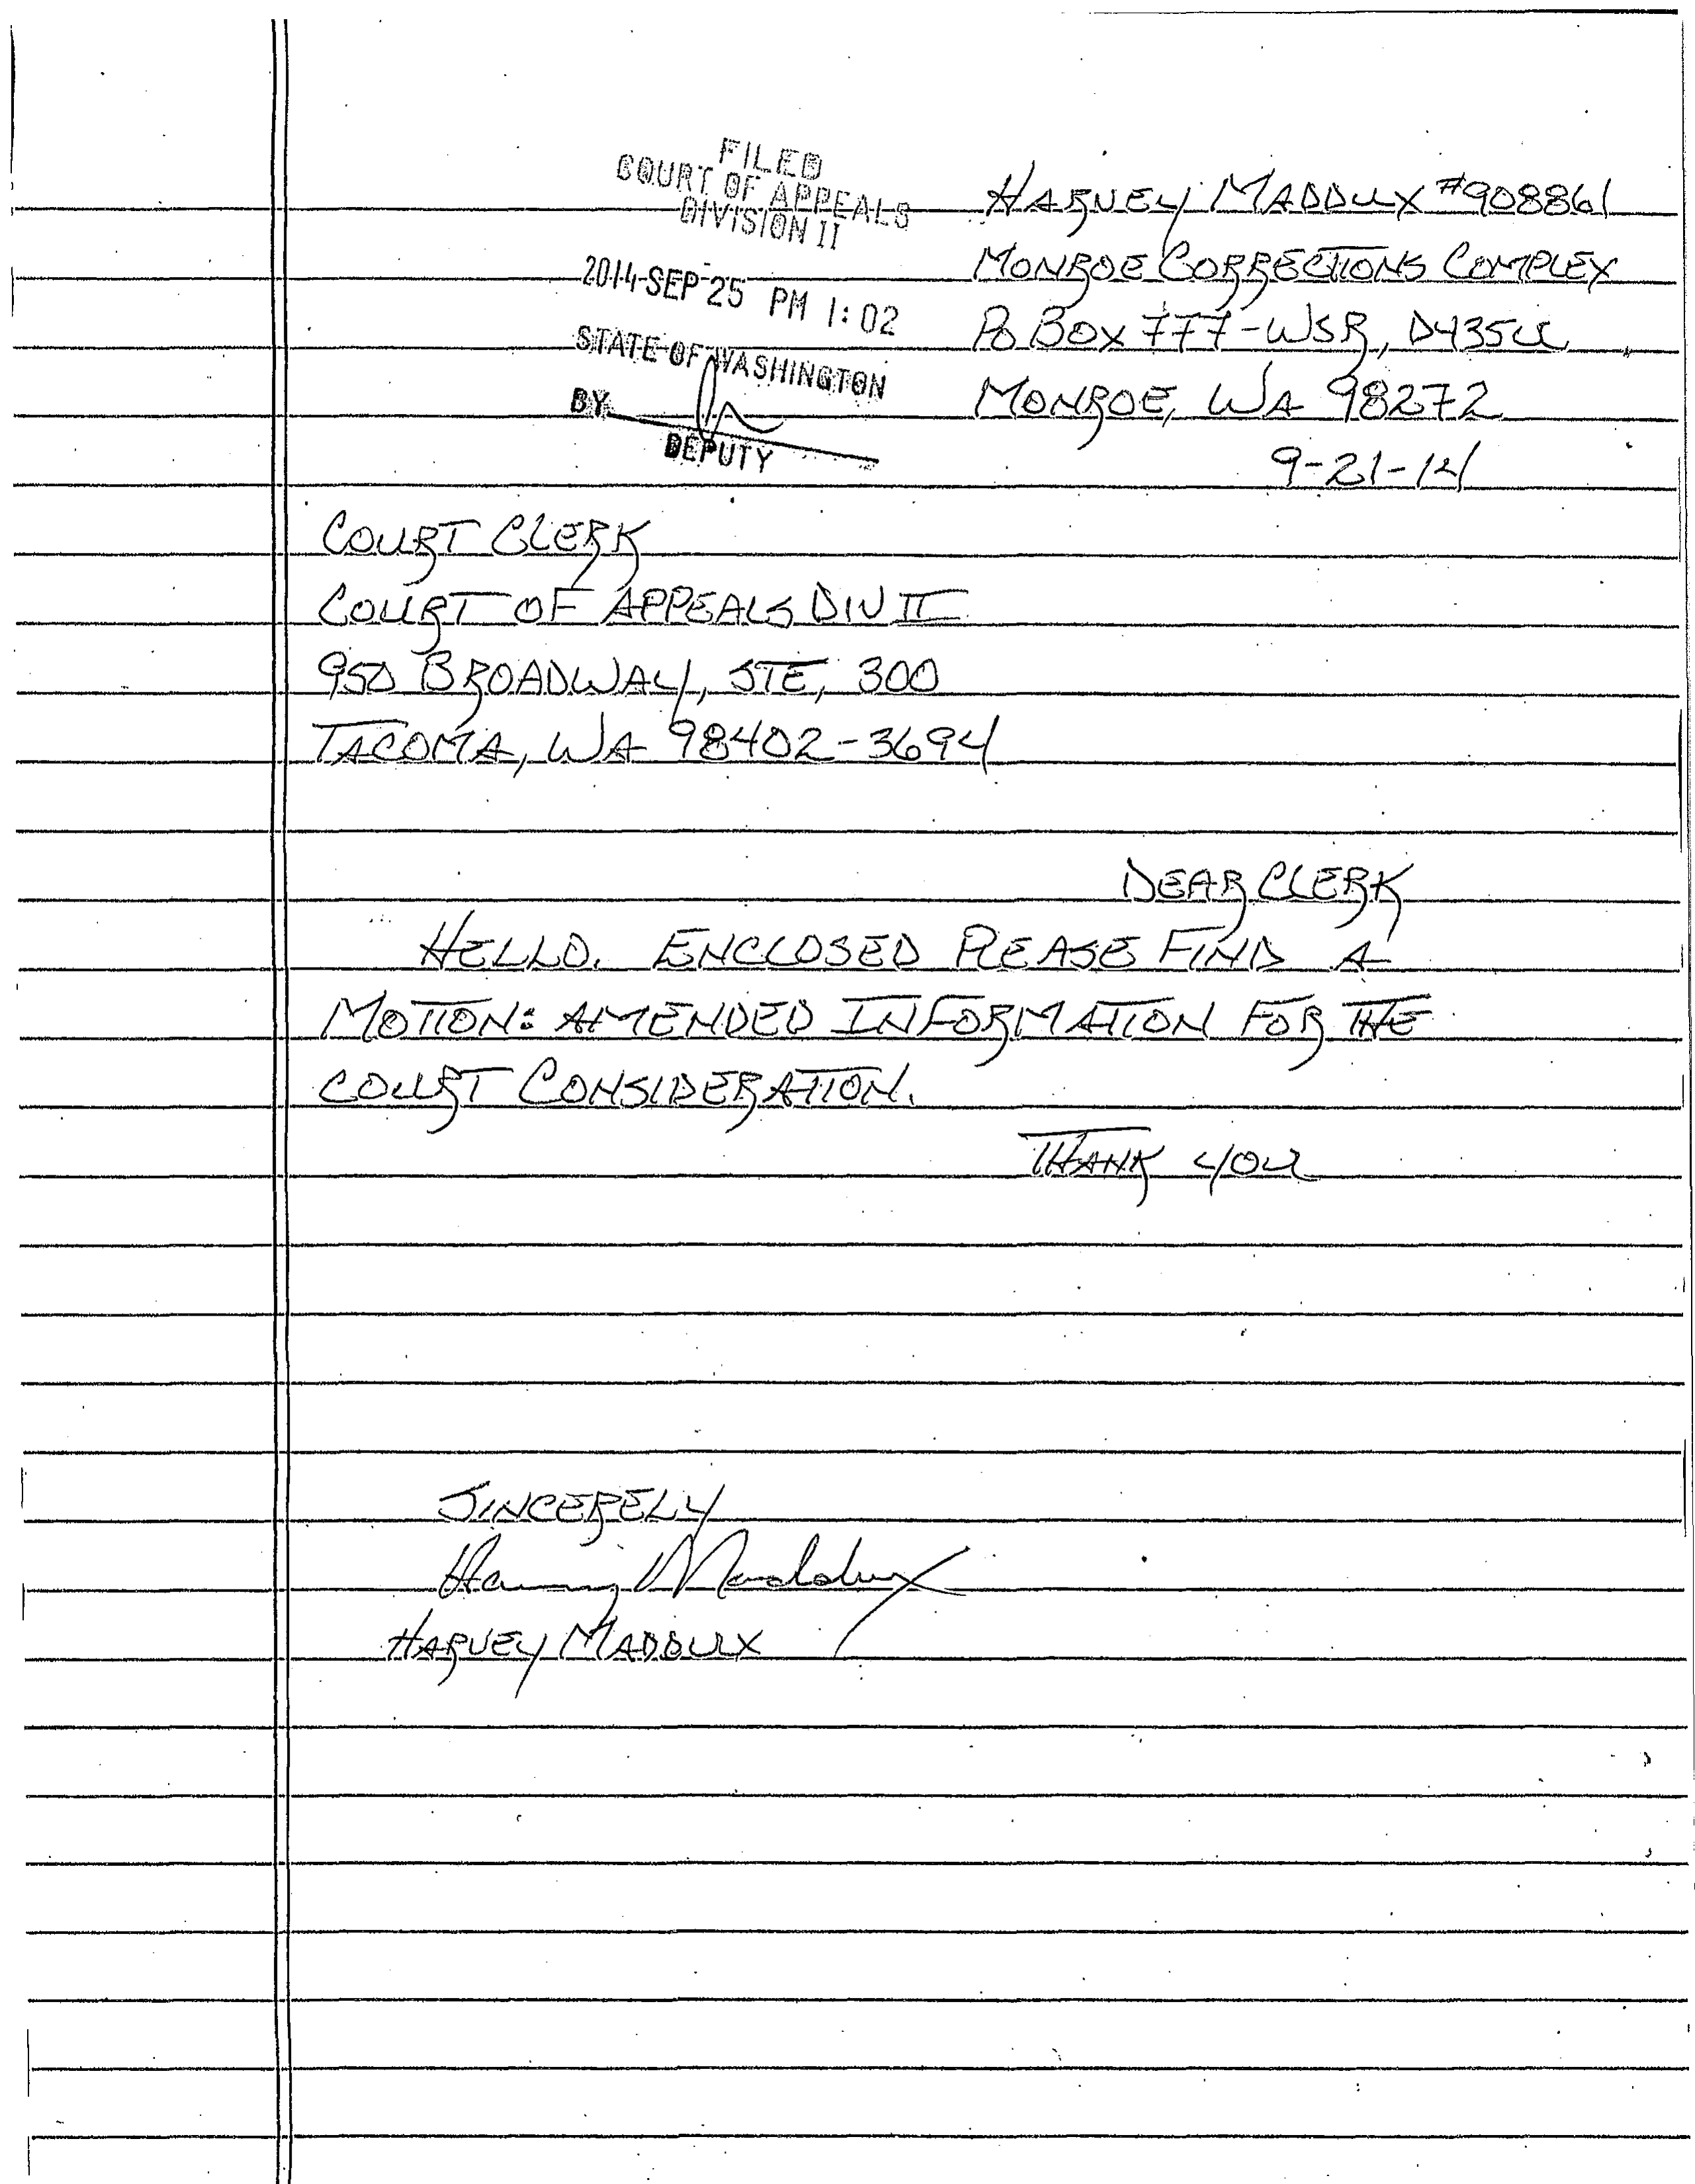 FILED
COURT OF APPEALS
DIVISION II
2014 SEP 25 PM 1:02
STATE OF WASHINGTON
BY
DEPUTY
HARVEY MADDUX #908861
MONROE CORRECTIONS COMPLEX
PO BOX 777-WSR, D435U
MONROE, WA 98272
9-21-14
COURT CLERK
COURT OF APPEALS DIV II
950 BROADWAY, STE, 300
TACOMA, WA 98402-3694
DEAR CLERK
HELLO. ENCLOSED PLEASE FIND A
MOTION: AMENDED INFORMATION FOR THE
COURT CONSIDERATION.
THANK YOU
SINCERELY
Harvey Maddux
HARVEY MADDUX